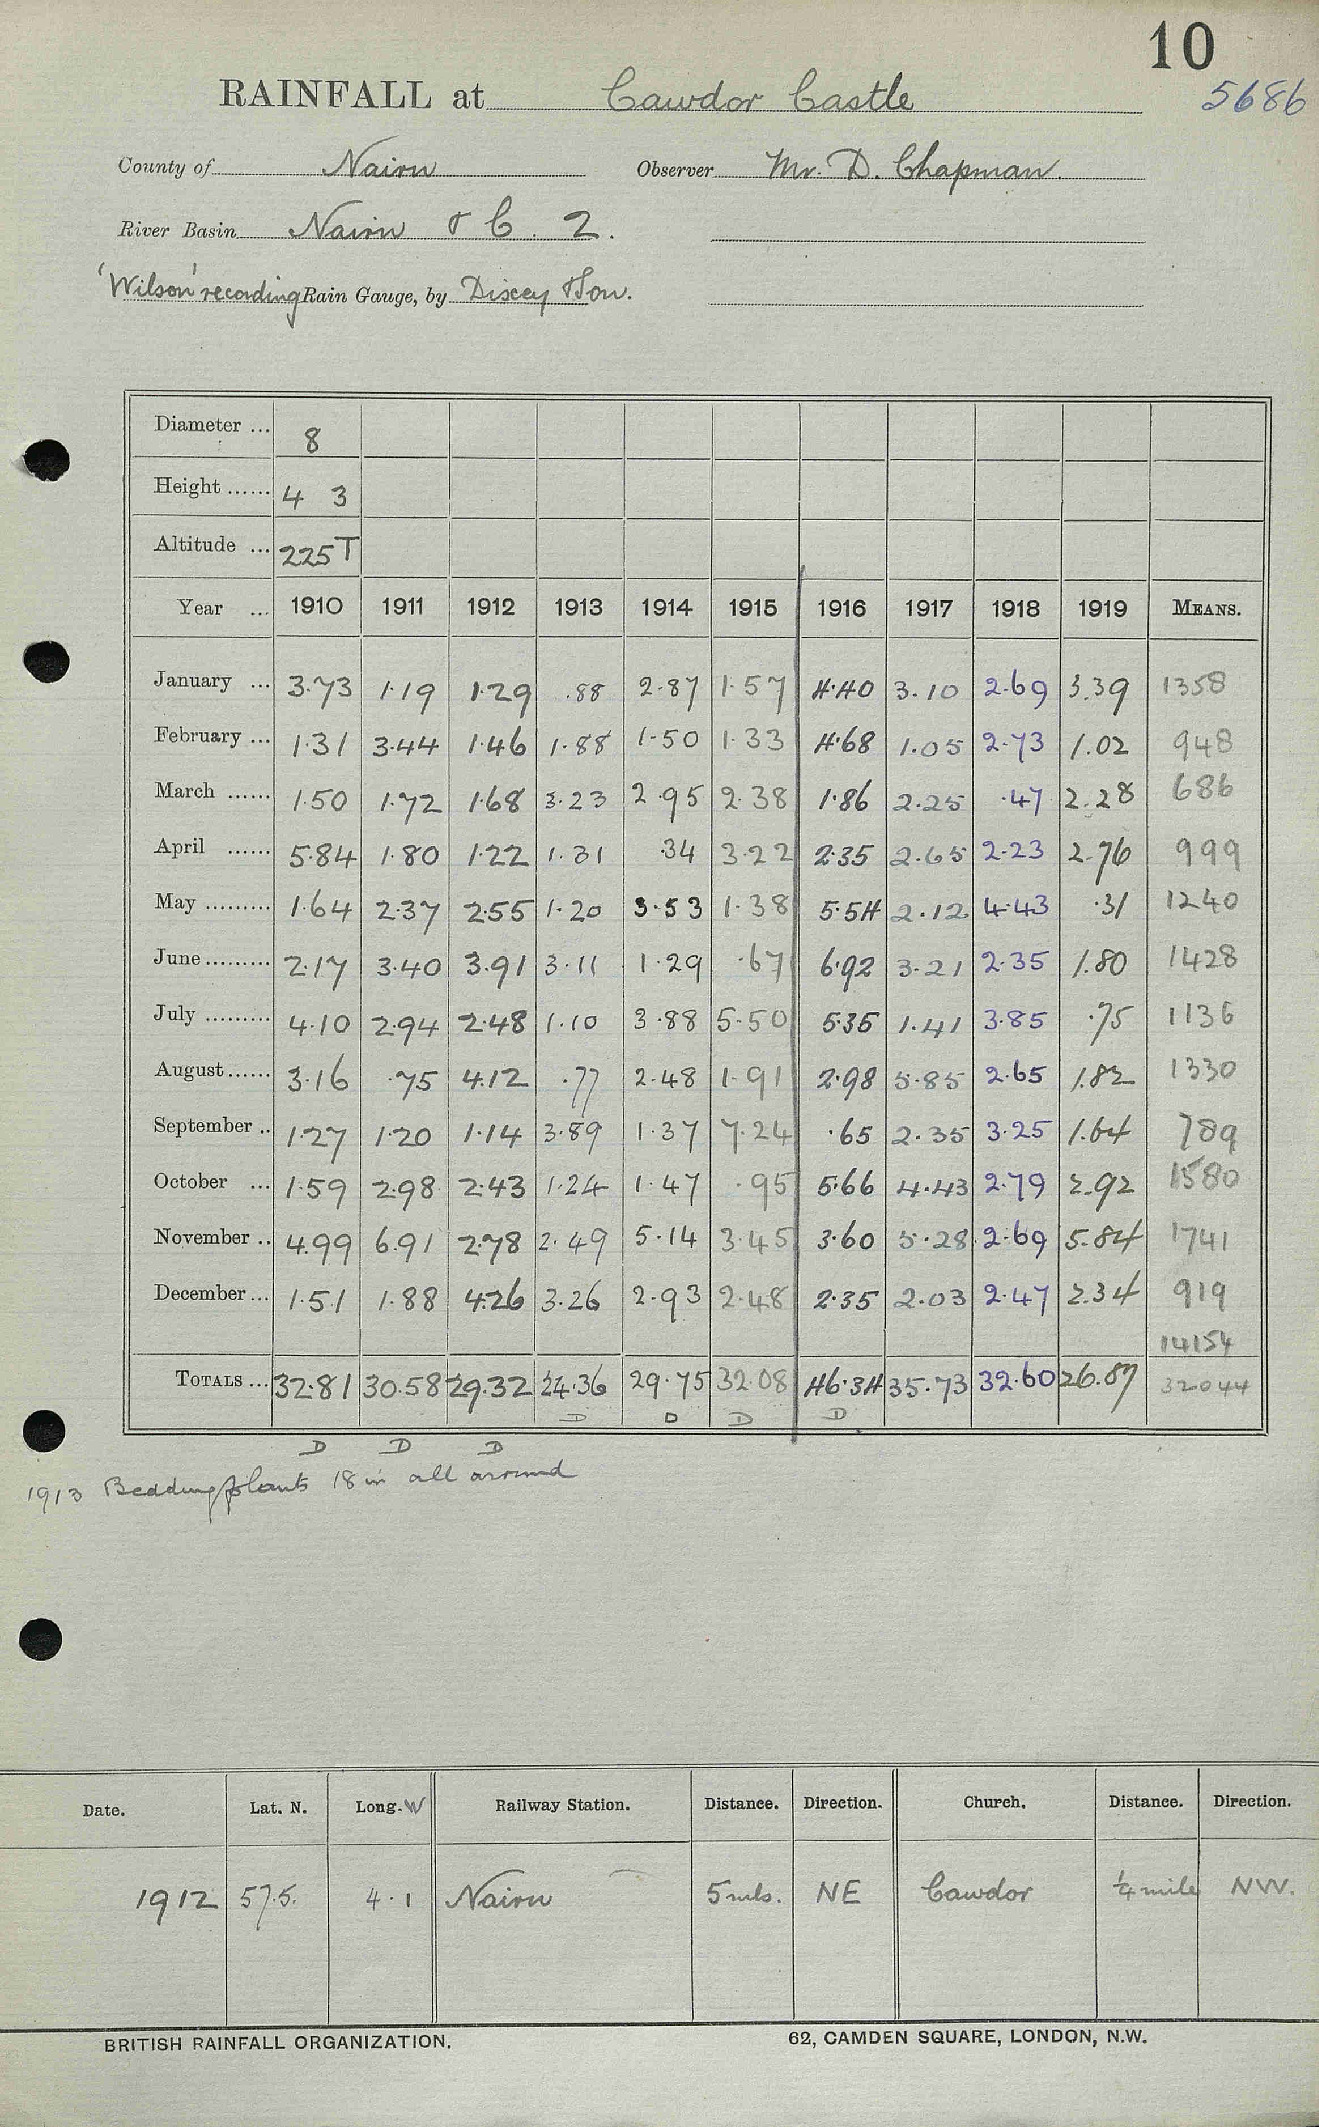 10
RAINFALL at Cawdor Castle 5686
County of Nairn Observer Mr. D. Chapman
River Basin Nairn & C. 2.
'Wilson' recording Rain Gauge, by Son.
Diameter ... 8
Height ...... 4 3
Altitude ... 225T
Year ... 1910 1911 1912 1913 1914 1915 1916 1917 1918 1919 MEANS.
January ... 3.73 1.19 1.29 .88 2.87 1.57 4.40 3.10 2.69 3.39 1358
February ... 1.31 3.44 1.46 1.88 1.50 1.33 4.68 1.05 2.73 1.02 948
March ...... 1.50 1.72 1.68 3.23 2.95 2.38 1.86 2.25 .47 2.28 686
April ...... 5.84 1.80 1.22 1.31 .34 3.22 2.35 2.65 2.23 2.76 999
May ......... 1.64 2.37 2.55 1.20 3.53 1.38 5.54 2.12 4.43 .31 1240
June ......... 2.17 3.40 3.91 3.11 1.29 .67 6.92 3.21 2.35 1.80 1428
July ......... 4.10 2.94 2.48 1.10 3.88 5.50 5.35 1.41 3.85 .75 1136
August ...... 3.16 .75 4.12 .77 2.48 1.91 2.98 5.85 2.65 1.82 1330
September .. 1.27 1.20 1.14 3.89 1.37 7.24 .65 2.35 3.25 1.64 789
October ... 1.59 2.98 2.43 1.24 1.47 .95 5.66 4.43 2.79 2.92 1580
November .. 4.99 6.91 2.78 2.49 5.14 3.45 3.60 5.28 2.69 5.84 1741
December ... 1.51 1.88 4.26 3.26 2.93 2.48 2.35 2.03 2.47 2.34 919
14154
TOTALS ... 32.81 30.58 29.32 24.36 29.75 32.08 46.34 35.73 32.60 26.87 32044
D D D D
D D D
1913 Bedding plants 18 in all around
Date. Lat. N. Long. W Railway Station. Distance. Direction. Church. Distance. Direction.
1912 57.5. 4.1 Nairn 5 mls. NE Cawdor ¼ mile NW.
BRITISH RAINFALL ORGANIZATION. 62, CAMDEN SQUARE, LONDON, N.W.